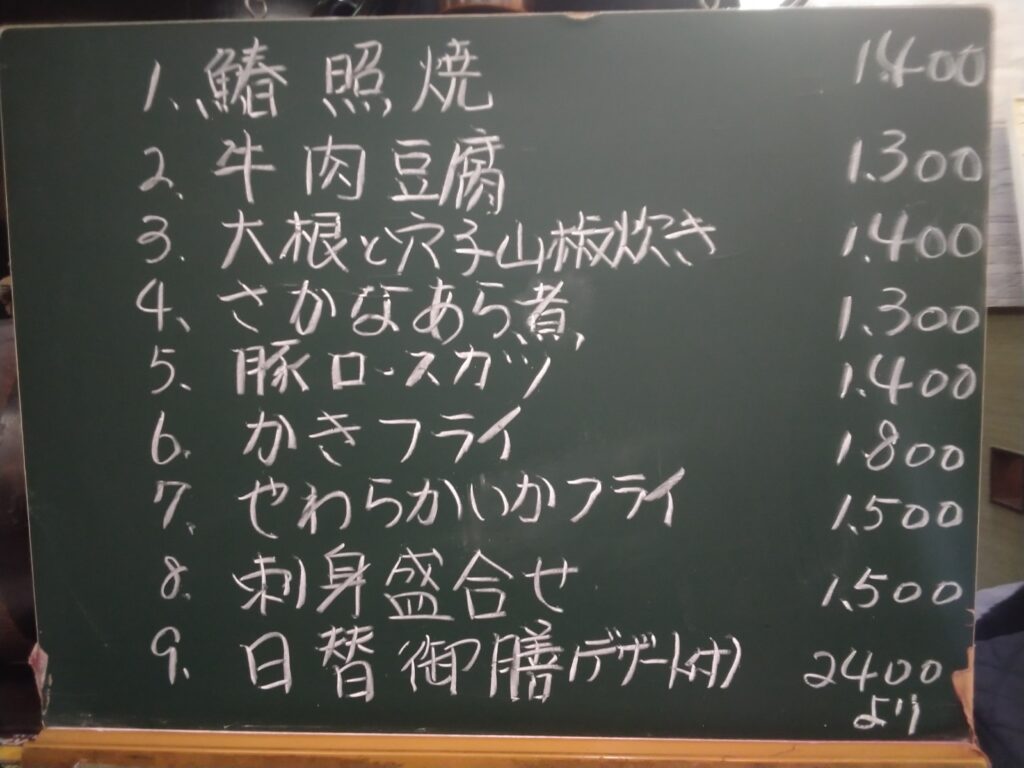 1、鰆照焼 1.400
2、牛肉豆腐 1.300
3、大根と穴子山椒炊き 1.400
4、さかなあら煮 1.300
5、豚ロースカツ 1.400
6、かきフライ 1.800
7、やわらかいかフライ 1.500
8、刺身盛合せ 1.500
9、日替御膳(デザート付) 2400
より